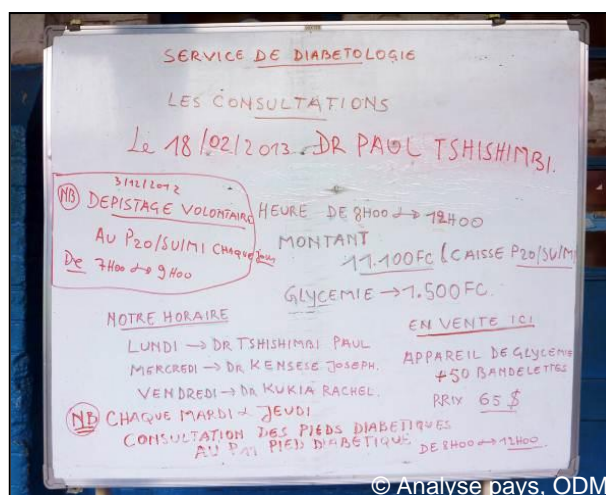 SERVICE DE DIABETOLOGIE
LES CONSULTATIONS
Le 18/02/2013. DR PAUL TSHISHIMBI.
3/12/2012
NB DEPISTAGE VOLONTAIRE
AU P20/SU/MI CHAQUE jour
De 7H00 → 9H00
HEURE DE 8H00 → 12H00
MONTANT
11.100FC (CAISSE P20/SU/MI
GLYCEMIE → 1.500FC.
NOTRE HORAIRE
LUNDI → DR TSHISHIMBI PAUL
MERCREDI → DR KENSESE JOSEPH.
VENDREDI → DR KUKIA RACHEL.
EN VENTE ICI
APPAREIL DE GLYCEMIE
+50 BANDELETTES
PRIX 65 $
NB CHAQUE MARDI & JEUDI
CONSULTATION DES PIEDS DIABETIQUES
AU P11 PIED DIABETIQUE DE 8H00 → 12H00.
© Analyse pays, ODM